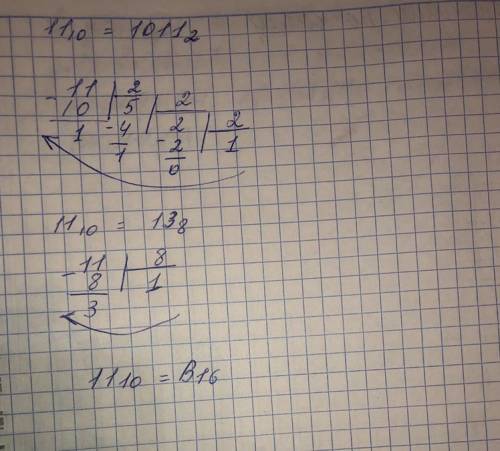 11₁₀ = 1011₂
-11 | 2
10 | 5 | 2
1 -4 | 2 | 2
1 -2 | 1
0
11₁₀ = 13₈
-11 | 8
8 | 1
3
11₁₀ = B₁₆